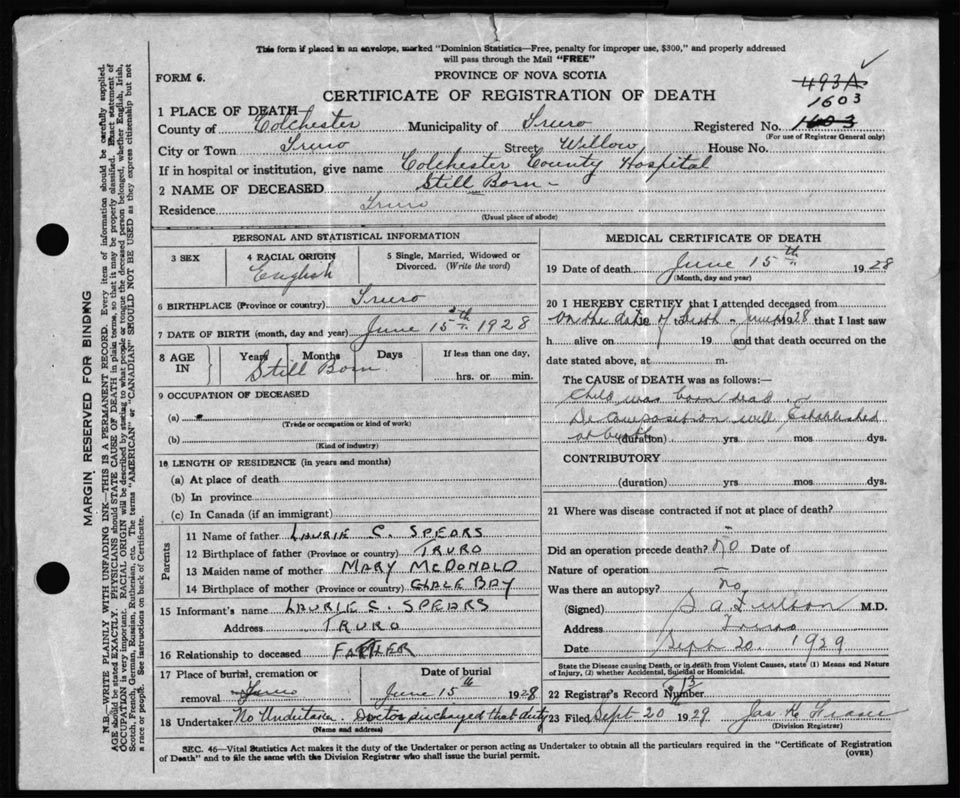 This form if placed in an envelope, marked "Dominion Statistics—Free, penalty for improper use, $300," and properly addressed
will pass through the Mail "FREE"
FORM 6.
PROVINCE OF NOVA SCOTIA
493A
CERTIFICATE OF REGISTRATION OF DEATH
1603
1 PLACE OF DEATH
County of Colchester Municipality of Truro Registered No. 1603
(For use of Registrar General only)
City or Town Truro Street Willow House No.
If in hospital or institution, give name Colchester County Hospital
2 NAME OF DECEASED Still Born -
Residence Truro
(Usual place of abode)
PERSONAL AND STATISTICAL INFORMATION
3 SEX
4 RACIAL ORIGIN English
5 Single, Married, Widowed or Divorced. (Write the word)
6 BIRTHPLACE (Province or country) Truro
7 DATE OF BIRTH (month, day and year) June 15th 1928
8 AGE IN Years Months Days If less than one day,
Still Born hrs. or min.
9 OCCUPATION OF DECEASED
(a)
(Trade or occupation or kind of work)
(b)
(Kind of industry)
10 LENGTH OF RESIDENCE (in years and months)
(a) At place of death
(b) In province
(c) In Canada (if an immigrant)
Parents
11 Name of father LAURIE C. SPEARS
12 Birthplace of father (Province or country) TRURO
13 Maiden name of mother MARY McDONALD
14 Birthplace of mother (Province or country) GLACE BAY
15 Informant's name LAURIE C. SPEARS
Address TRURO
16 Relationship to deceased FATHER
17 Place of burial, cremation or removal Truro
Date of burial June 15th 1928
18 Undertaker No Undertaker. Doctor discharged that duty
(Name and address)
MEDICAL CERTIFICATE OF DEATH
19 Date of death June 15th 1928
(Month, day and year)
20 I HEREBY CERTIFY that I attended deceased from
On the date of Death - 1928 that I last saw
h alive on 19 and that death occurred on the
date stated above, at m.
The CAUSE of DEATH was as follows:—
Child was born dead
Decomposition well Established
at birth (duration) yrs. mos dys.
CONTRIBUTORY
(duration) yrs. mos dys.
21 Where was disease contracted if not at place of death?
-
Did an operation precede death? No Date of
Nature of operation -
Was there an autopsy? No
(Signed) S. A. Fulton M.D.
Address Truro
Date Sept 20. 1929
State the Disease causing Death, or in death from Violent Causes, state (1) Means and Nature
of Injury, (2) whether Accidental, Suicidal or Homicidal.
22 Registrar's Record Number
23 Filed Sept 20th 1929 Jas K. Fraser
(Division Registrar)
SEC. 46—Vital Statistics Act makes it the duty of the Undertaker or person acting as Undertaker to obtain all the particulars required in the "Certificate of Registration
of Death" and to file the same with the Division Registrar who shall issue the burial permit.
(OVER)
MARGIN RESERVED FOR BINDING
N.B.—WRITE PLAINLY WITH UNFADING INK—THIS IS A PERMANENT RECORD. Every item of information should be carefully supplied.
AGE should be stated EXACTLY. PHYSICIANS should STATE CAUSE OF DEATH in plain terms so that it may be properly classified. Exact statement of
OCCUPATION is very important. RACIAL ORIGIN will be described by stating to what people or tongue the deceased person belonged, whether English, Irish,
Scotch, French, German, Russian, Ruthenian, etc. The terms "AMERICAN" or "CANADIAN" SHOULD NOT BE USED as they express citizenship but not
a race or people. See instructions on back of Certificate.